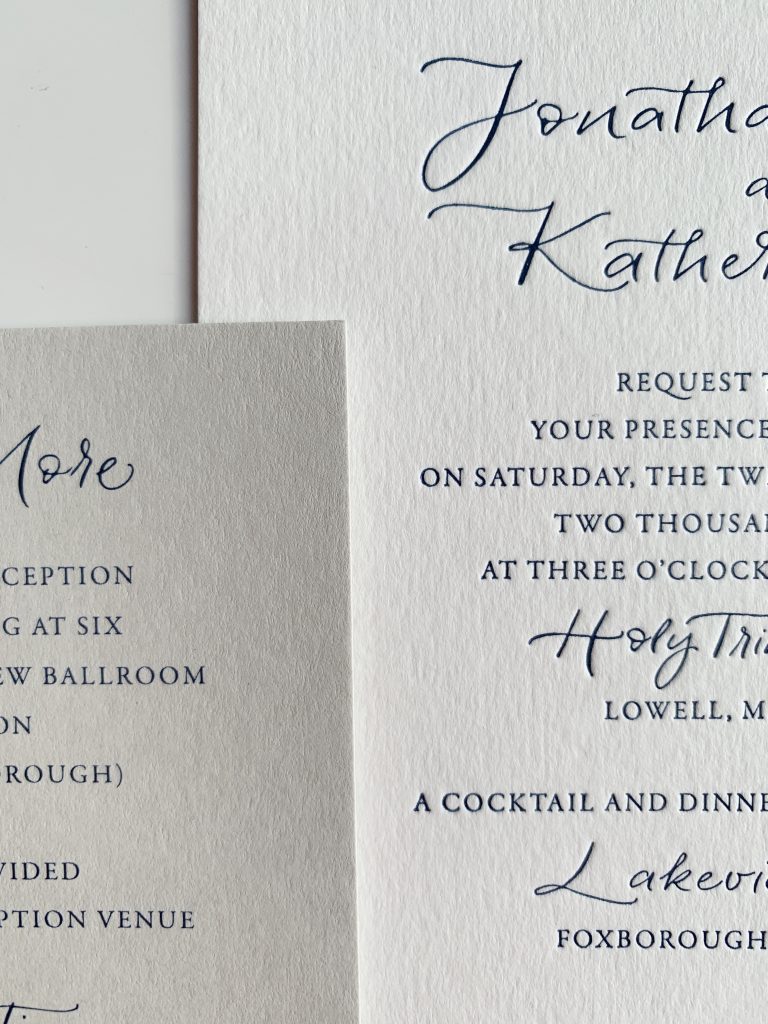 Jonatha
a
Kather
REQUEST T
YOUR PRESENCE
ON SATURDAY, THE TWE
TWO THOUSAN
AT THREE O'CLOCK
Holy Trin
LOWELL, M
A COCKTAIL AND DINNE
Lakevie
FOXBOROUGH
More
CEPTION
G AT SIX
EW BALLROOM
ON
OROUGH)
VIDED
PTION VENUE